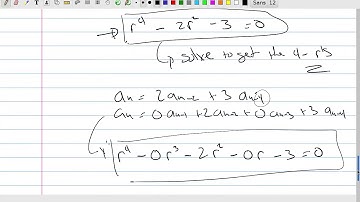 Sans 12
r⁴ - 2r² - 3 = 0
solve to get the 4 r's
aₙ = 2aₙ₋₂ + 3aₙ₋₄
aₙ = 0aₙ₋₁ + 2aₙ₋₂ + 0aₙ₋₃ + 3aₙ₋₄
r⁴ - 0r³ - 2r² - 0r - 3 = 0